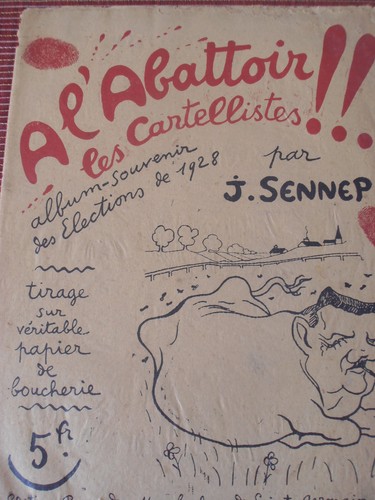 A l'Abattoir !!!
les Cartellistes
album-souvenir
des Elections de 1928
par
J. SENNEP
tirage
sur
véritable
papier
de
boucherie
5 fr